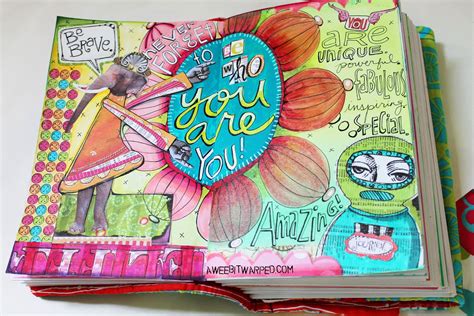 Be
BRAVE.
NEVER
FORGET
to
BE
WHO
you
are
YOU!
YOU
ARE
UNIQUE.
powerful,
fabulous
inspiring,
SO
SPECIAL.
AMAZING!
JOURNAL
AWEEBITWARPED.COM